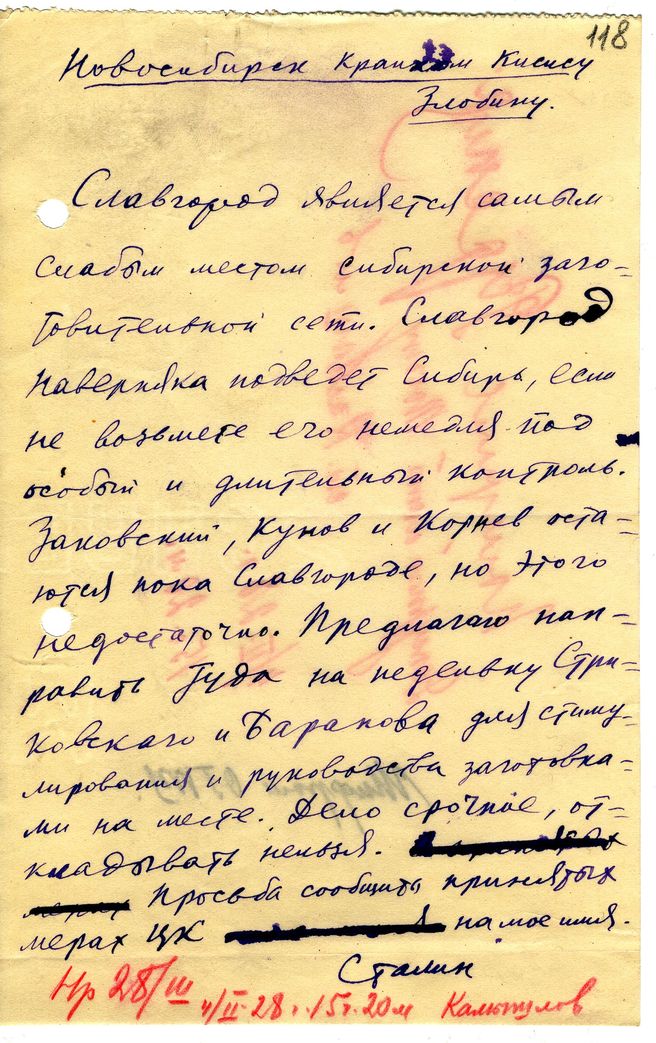 118
Новосибирск крайком Кисису
Злобину.
Славгород является самым
слабым местом сибирской заго-
товительной сети. Славгород
наверняка подведет Сибирь, если
не возьмете его немедля под
особый и длительный контроль.
Заковский, Кунов и Корнев оста-
ются пока Славгороде, но этого
недостаточно. Предлагаю нап-
равить туда на недельку Стри-
ковского и Баранова для стиму-
лирования и руководства заготовка-
ми на месте. Дело срочное, от-
кладывать нельзя.
Просьба сообщить принятых
мерах ЦК на мое имя.
Сталин
Нр 28/ш
4/II-28 г. 15ч. 20м